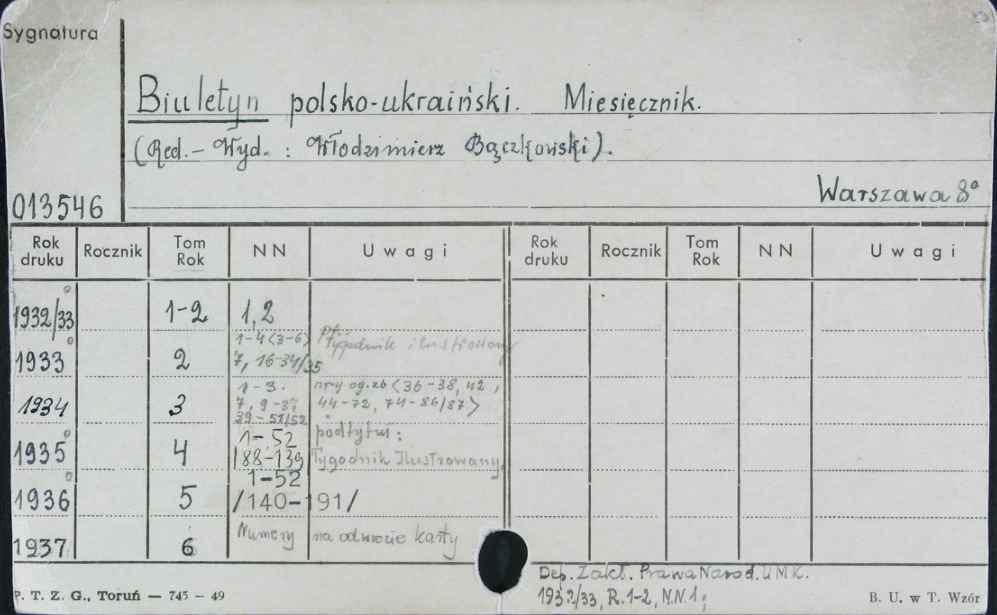 Sygnatura
Biuletyn polsko-ukraiński. Miesięcznik.
(Red. - Wyd. : Włodzimierz Bączkowski).
Warszawa 8°
013546
Rok druku Rocznik Tom Rok NN Uwagi Rok druku Rocznik Tom Rok NN Uwagi
1932/33 1-2 1,2
1-4 (3-6) Tygodnik ilustrowany
1933 2 7, 16-34/35
1-3. nry og. zb (36-38, 42,
1934 3 7, 9-37 44-72, 74-86/87)
39-51/52
1935 4 1-52 podtytuł:
/88-139 Tygodnik Ilustrowany.
1-52
1936 5 /140-191/
1937 6 Numery na odwrocie karty
Dep. Zakł. Prawa Narod. UMK.
1932/33, R. 1-2, N.N. 1;
P. T. Z. G., Toruń — 745 — 49
B. U. w T. Wzór